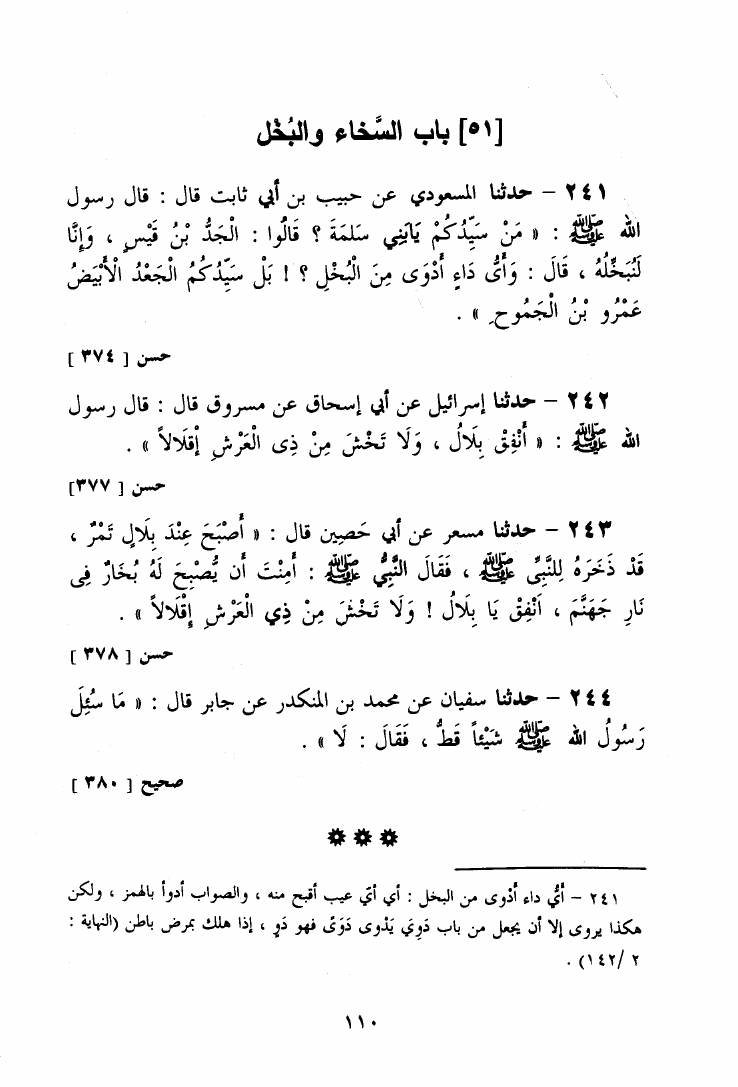 [٥١] باب السَّخاء والبُخْل
٢٤١ – حدثنا المسعودي عن حبيب بن أبي ثابت قال : قال رسول
الله ﷺ : « مَنْ سَيِّدُكُمْ يَابَنِي سَلَمَةَ ؟ قَالُوا : الْجَدُّ بْنُ قَيْسٍ ، وَإِنَّا
لَنُبَخِّلُهُ ، قَالَ : وَأَىُّ دَاءٍ أَدْوَى مِنَ الْبُخْلِ ؟ ! بَلْ سَيِّدُكُمُ الْجَعْدُ الْأَبْيَضُ
عَمْرُو بْنُ الْجَمُوحِ » .
حسن [ ٣٧٤ ]
٢٤٢ – حدثنا إسرائيل عن أبي إسحاق عن مسروق قال : قال رسول
الله ﷺ : « أَنْفِقْ بِلَالُ ، وَلَا تَخْشَ مِنْ ذِى الْعَرْشِ إِقْلَالاً » .
حسن [ ٣٧٧]
٢٤٣ – حدثنا مسعر عن أبي حَصِين قال : « أَصْبَحَ عِنْدَ بِلَالٍ تَمْرٌ ،
قَدْ ذَخَرَهُ لِلنَّبِيِّ ﷺ ، فَقَالَ النَّبِيُّ ﷺ : أَمِنْتَ أَن يُّصْبِحَ لَهُ بُخَارٌ فِى
نَارِ جَهَنَّمَ ، اَنْفِقْ يَا بِلَالُ ! وَلَا تَخْشَ مِنْ ذِي الْعَرْشِ إِقْلَالاً » .
حسن [ ٣٧٨ ]
٢٤٤ – حدثنا سفيان عن محمد بن المنكدر عن جابر قال : « مَا سُئِلَ
رَسُولُ الله ﷺ شَيْئاً قَطُّ ، فَقَالَ : لَا » .
صحيح [ ٣٨٠ ]
٢٤١ – أَيُّ داء أَدْوى من البخل : أي أيّ عيب أقبح منه ، والصواب أدوأ بالهمز ، ولكن
هكذا يروى إلا أن يجعل من باب دَوِيَ يَدْوى دَوَىً فهو دَوٍ ، إذا هلك بمرض باطن (النهاية :
٢ /١٤٢) .
١١٠